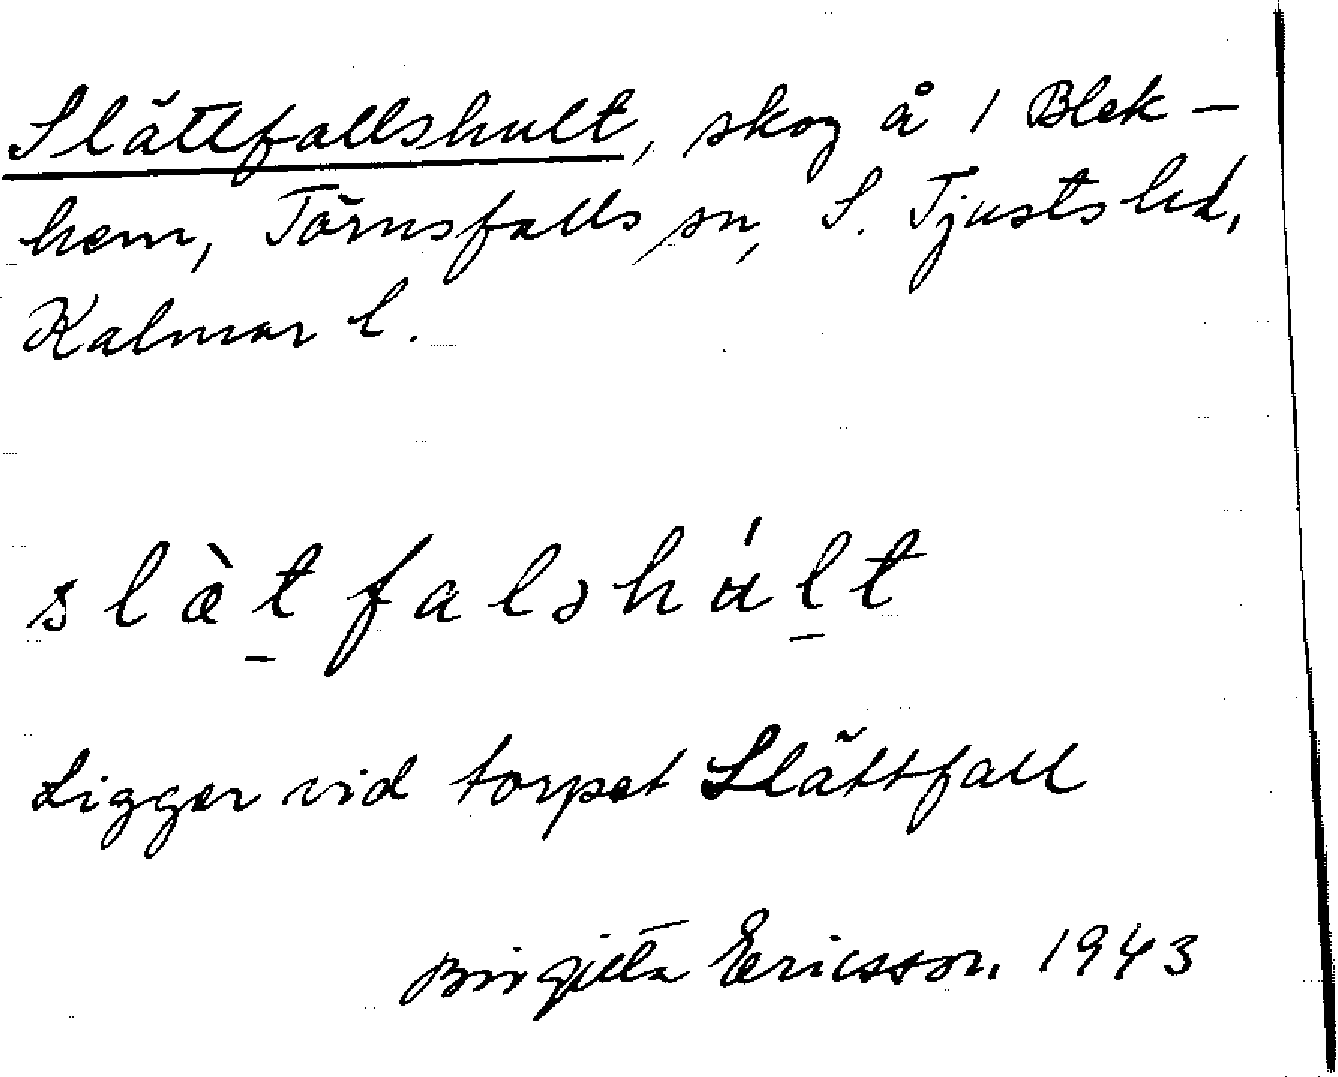 Slättfallshult, skog å 1 Blek-
hem, Törnsfalls sn, S. Tjusts hd,
Kalmar l.
slæ̀t̠falshúl̠t
Ligger vid torpet Slättfall
Birgitta Ericsson. 1943